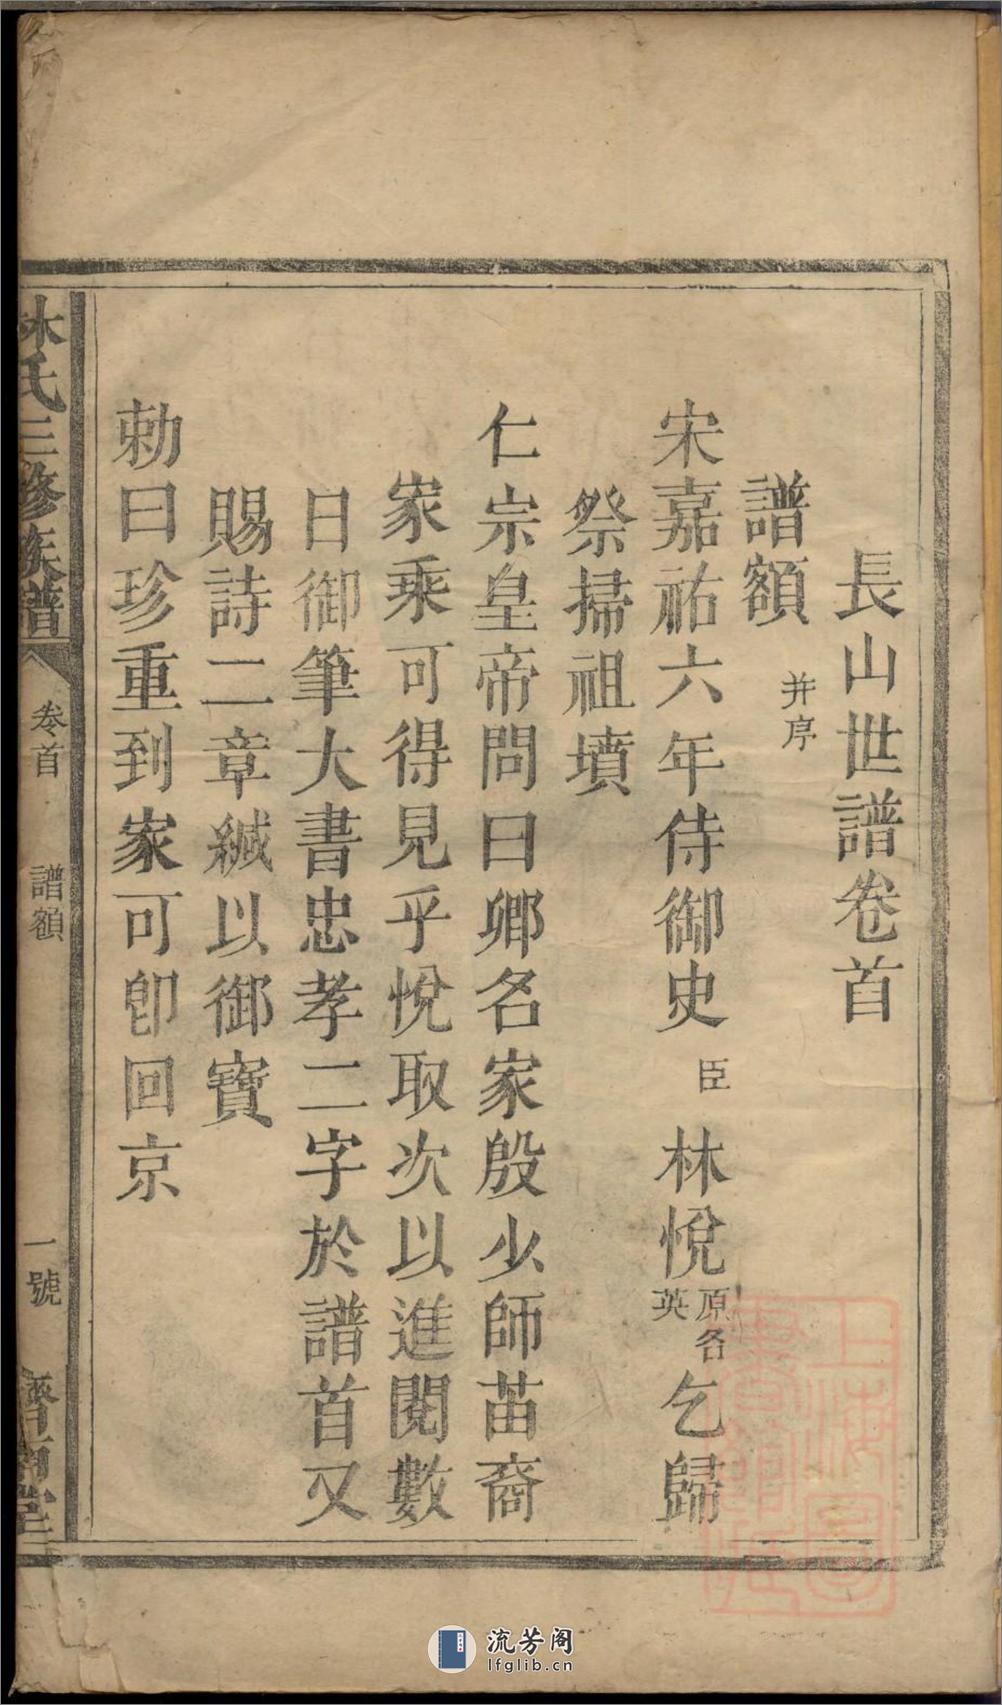 長山世譜卷首
譜額 并序
宋嘉祐六年侍御史 臣 林悅 原名英 乞歸
祭掃祖墳
仁宗皇帝問曰卿名家殷少師苗裔
家乘可得見乎悅取次以進閱數
日御筆大書忠孝二字於譜首又
賜詩二章緘以御寶
勅曰珍重到家可卽回京
林氏三修族譜 卷首 譜額 一號
上海圖書館藏
流芳阁
lfglib.cn